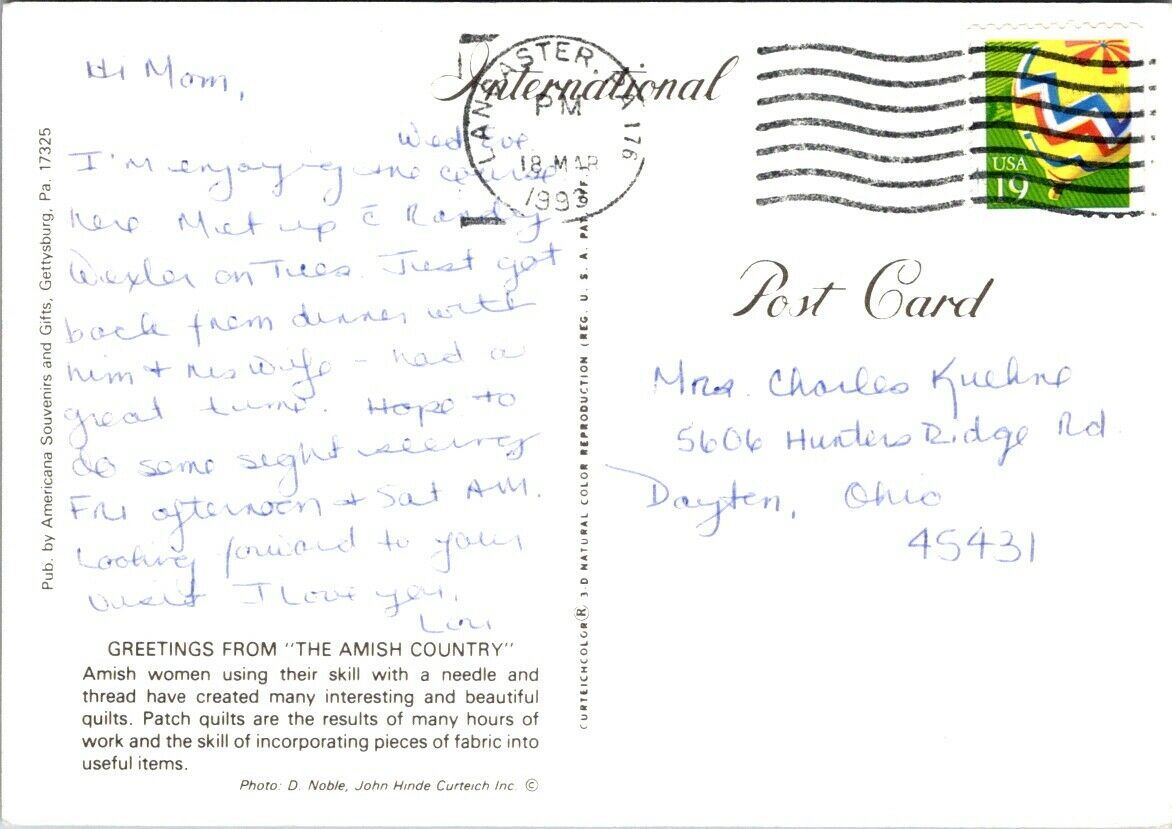 Hi Mom,
Wed Eve.
I'm enjoying the course
here Met up c̄ Randy
Wexler on Tues. Just got
back from dinner with
him + his wife - had a
great time. Hope to
do some sight seeing
Fri afternoon + Sat A.M.
Looking forward to your
visit I love you,
Lori
GREETINGS FROM "THE AMISH COUNTRY"
Amish women using their skill with a needle and
thread have created many interesting and beautiful
quilts. Patch quilts are the results of many hours of
work and the skill of incorporating pieces of fabric into
useful items.
Photo: D. Noble, John Hinde Curteich Inc. ©
Pub. by Americana Souvenirs and Gifts, Gettysburg, Pa. 17325
CURTEICHCOLOR® 3-D NATURAL COLOR REPRODUCTION (REG. U. S. A. PAT. OFF.)
International
LANCASTER, PA 176
PM
18 MAR
1993
USA
19
Post Card
Mrs. Charles Kuehne
5606 Hunters Ridge Rd.
Dayton, Ohio
45431